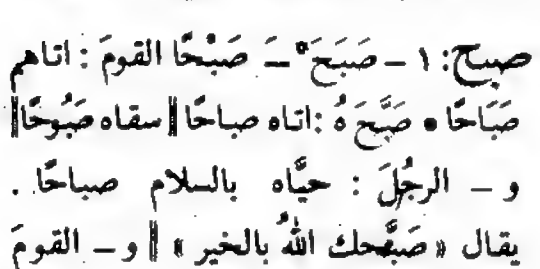 صبح: ١ – صَبَحَ ° ـَـ صَبْحًا القومَ : اتاهم
صَبَاحًا • صَبَّحَ هُ : اتاه صباحًا || سقاه صَبُوحًا ||
و – الرجُلَ : حيَّاه بالسلام صباحًا .
يقال « صَبَّحك اللهُ بالخير » || و – القومَ